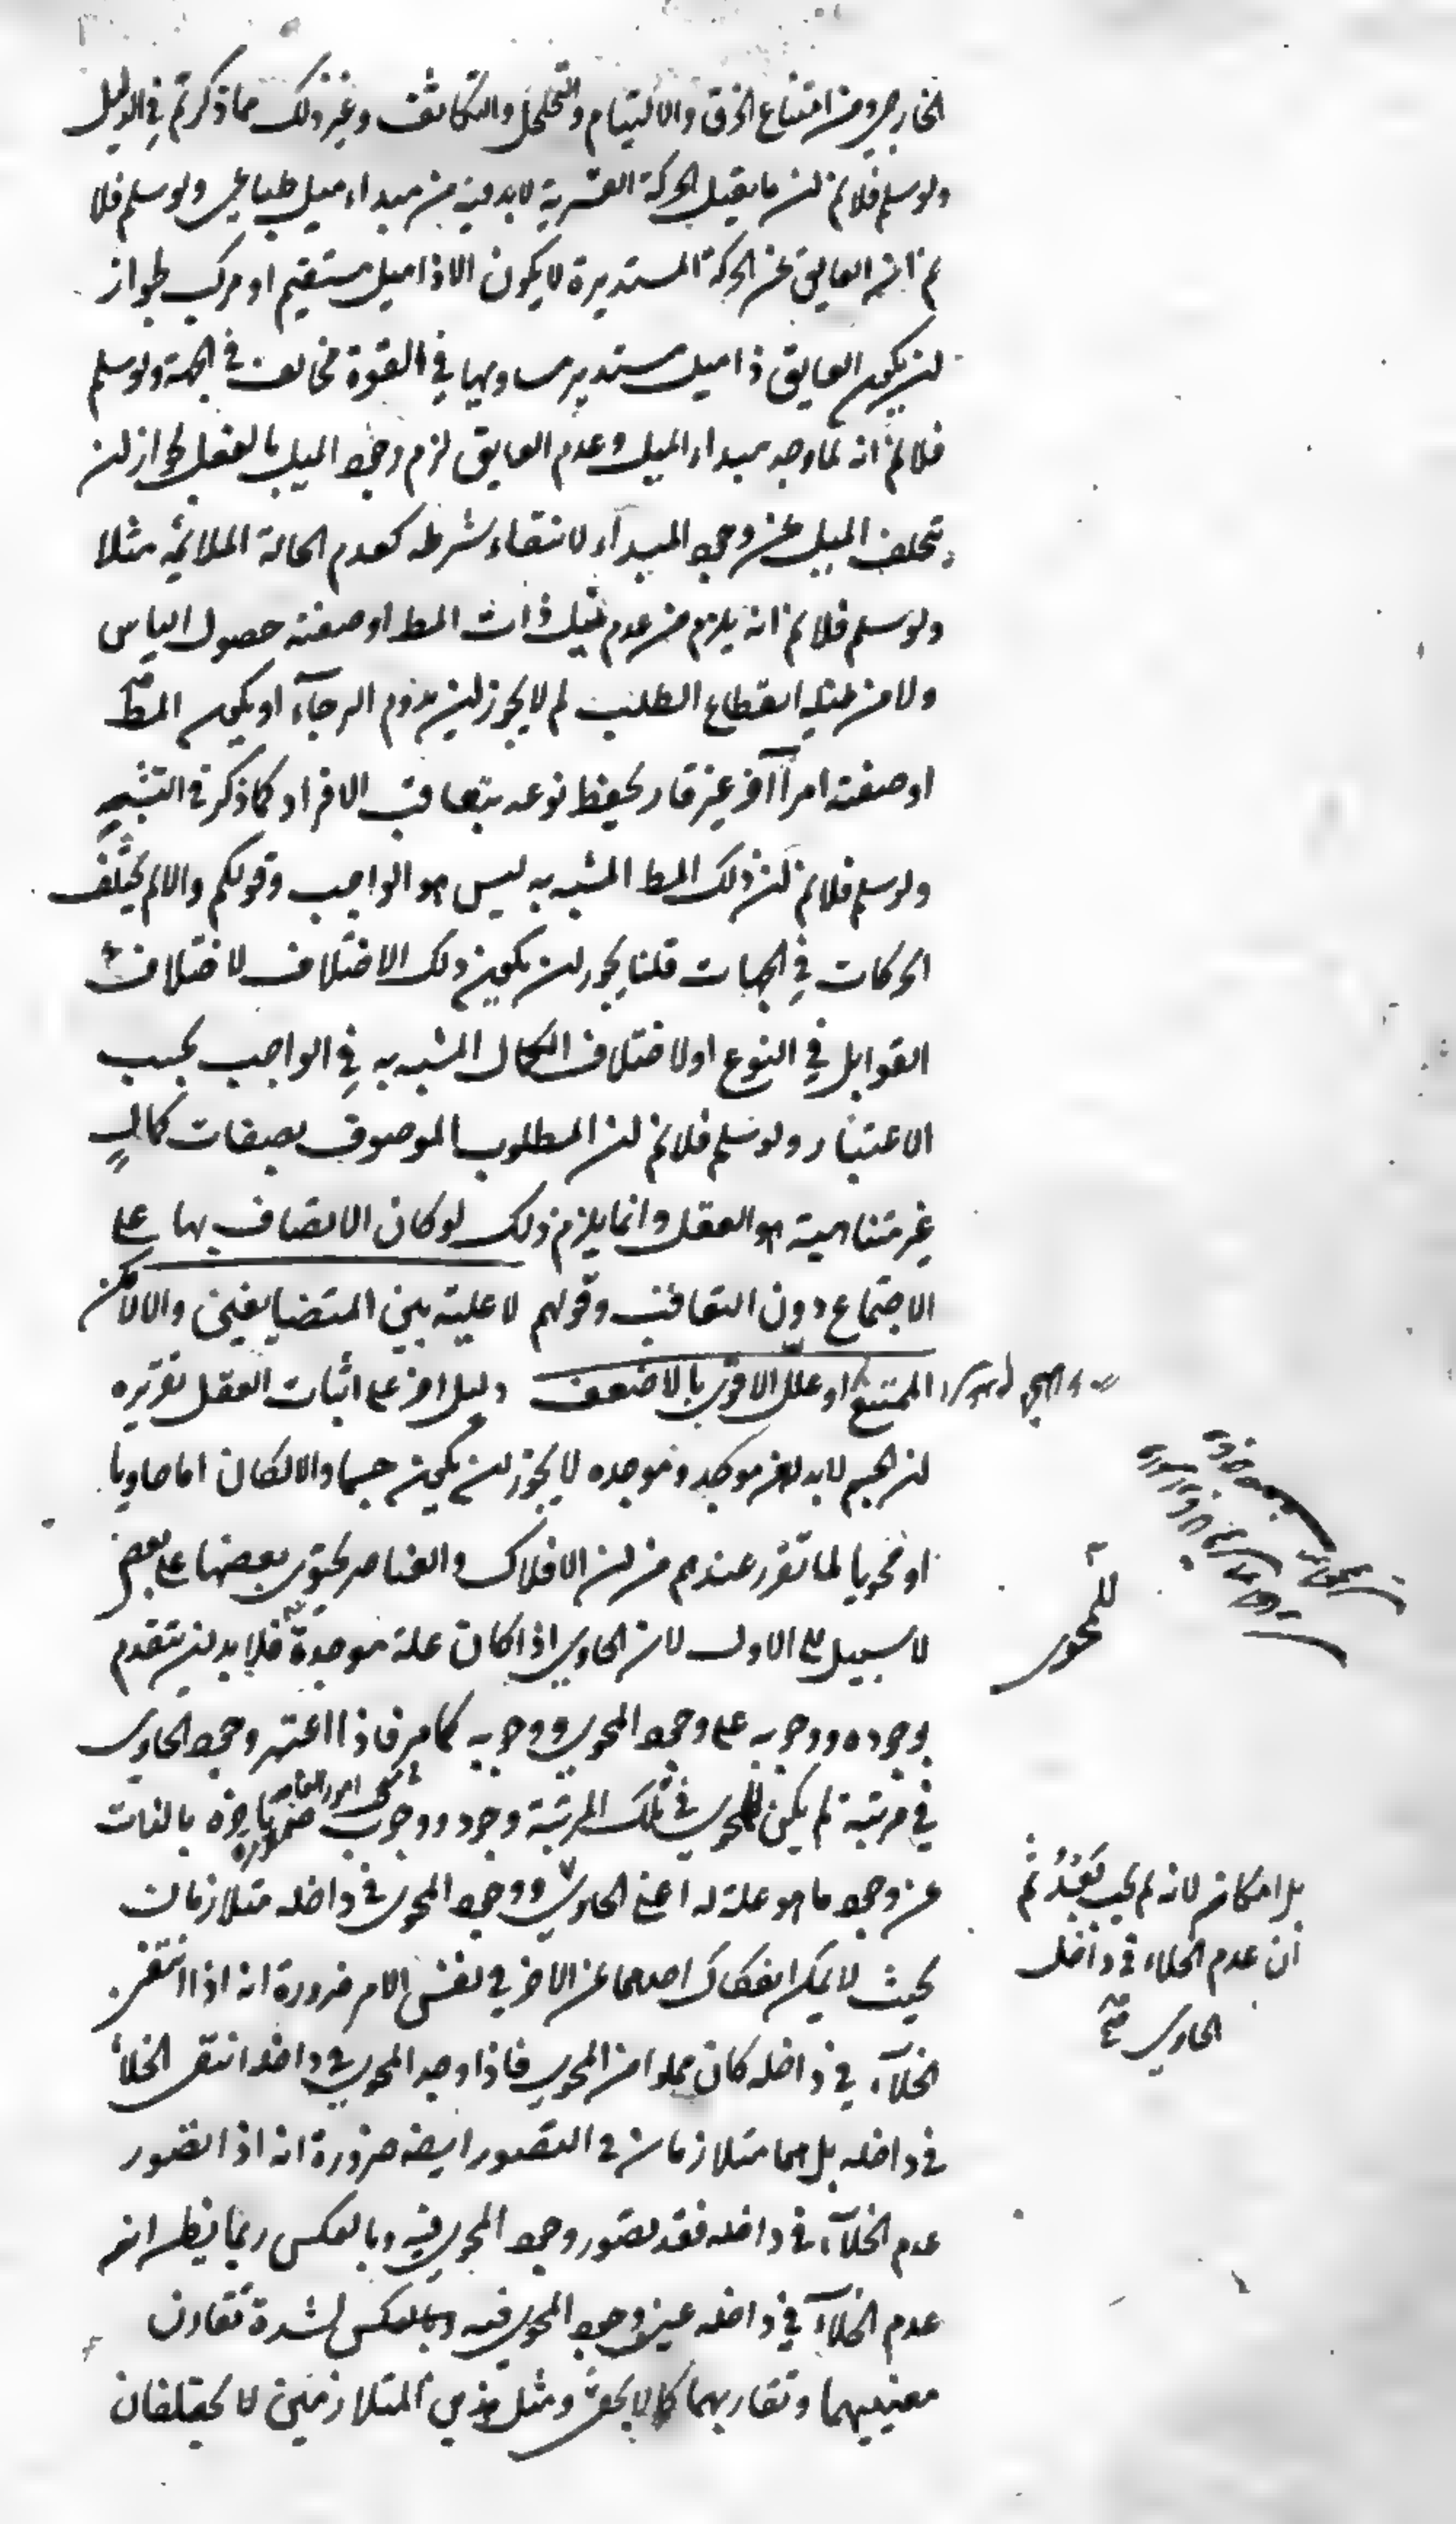 الخارجي ومن امتناع الخرق والالتيام والتخلخل والتكاثف وغير ذلك مما ذكرتم في الدليل
ولو سلم فلا نم ان ما يقبل الحركة القسرية لا بد فيه من مبداء ميل طباعي ولو سلم فلا
نم ان العايق عن الحركة المستديرة لا يكون الا ذا ميل مستقيم او مركب لجواز
ان يكون العايق ذا ميل مستدير مساويها في القوة مخالف في الجهة ولو سلم
فلا نم انه لما وجد مبداء الميل وعدم العايق لزم وجود الميل بالفعل لجواز ان
يتخلف الميل عن وجود المبداء لانتفاء شرطه كعدم الحالة الملائمة مثلا
ولو سلم فلا نم انه يلزم من عدم نيل ذات المط او صفته حصول الياس
ولا من نيله انقطاع الطلب لم لا يجوز ان يدوم الرجاء او يكون المط
او صفته امرا آخر غير قار يحفظ نوعه بتعاقب الافراد كما ذكر في التشبه
ولو سلم فلا نم ان ذلك المط المشبه به ليس هو الواجب وقولكم والا لم يختلف
الحركات في الجهات قلنا يجوز ان يكون ذلك الاختلاف لاختلاف
القوابل في النوع او لاختلاف الكمال المشبه به في الواجب بحسب
الاعتبار ولو سلم فلا نم ان المطلوب الموصوف بصفات كمال
غير متناهية هو العقل وانما يلزم ذلك لو كان الاتصاف بها على
الاجتماع دون التعاقب وقولهم لا علية بين المتضايفين والا لامكن
الممتنع او علل الاقوى بالاضعف دليل اخر على اثبات العقل تقريره
ان الجسم لا بد له من موجد وموجده لا يجوز ان يكون جسما والا لكان اما حاويا
او محويا لما تقرر عندهم من ان الافلاك والعناصر يحتوى بعضها على بعض
لا سبيل الى الاول لان الحاوي اذا كان علة موجدة فلا بد ان يتقدم
للمحوى
بوجوده ووجوبه على وجود المحوى ووجوبه كما مر فاذا اعتبر وجود الحاوى
في مرتبة لم يكن للمحوي في تلك المرتبة وجود ووجوب ضرورة تاخره بالذات
عن وجود ما هو علة له اعنى الحاوي ووجود المحوى في داخله متلازمان
بل امكان لانه لم يجب بعد ثم
ان عدم الخلاء في داخل
الحاوي صح
بحيث لا يمكن انفكاك احدهما عن الاخر في نفس الامر ضرورة انه اذا انتفى
الخلاء في داخله كان مملوا من المحوي فاذا وجد المحوي في داخله انتفى الخلاء
في داخله بل هما متلازمان في التصور ايضه ضرورة انه اذا تصور
عدم الخلاء في داخله فقد تصور وجود المحوي فيه وبالعكس ربما يظن انه
عدم الخلاء في داخله عين وجود المحوي فيه وبالعكس لشدة تقارن
معنييهما وتقاربهما كما لا يخفى ومثل هذين المتلازمين لا يختلفان